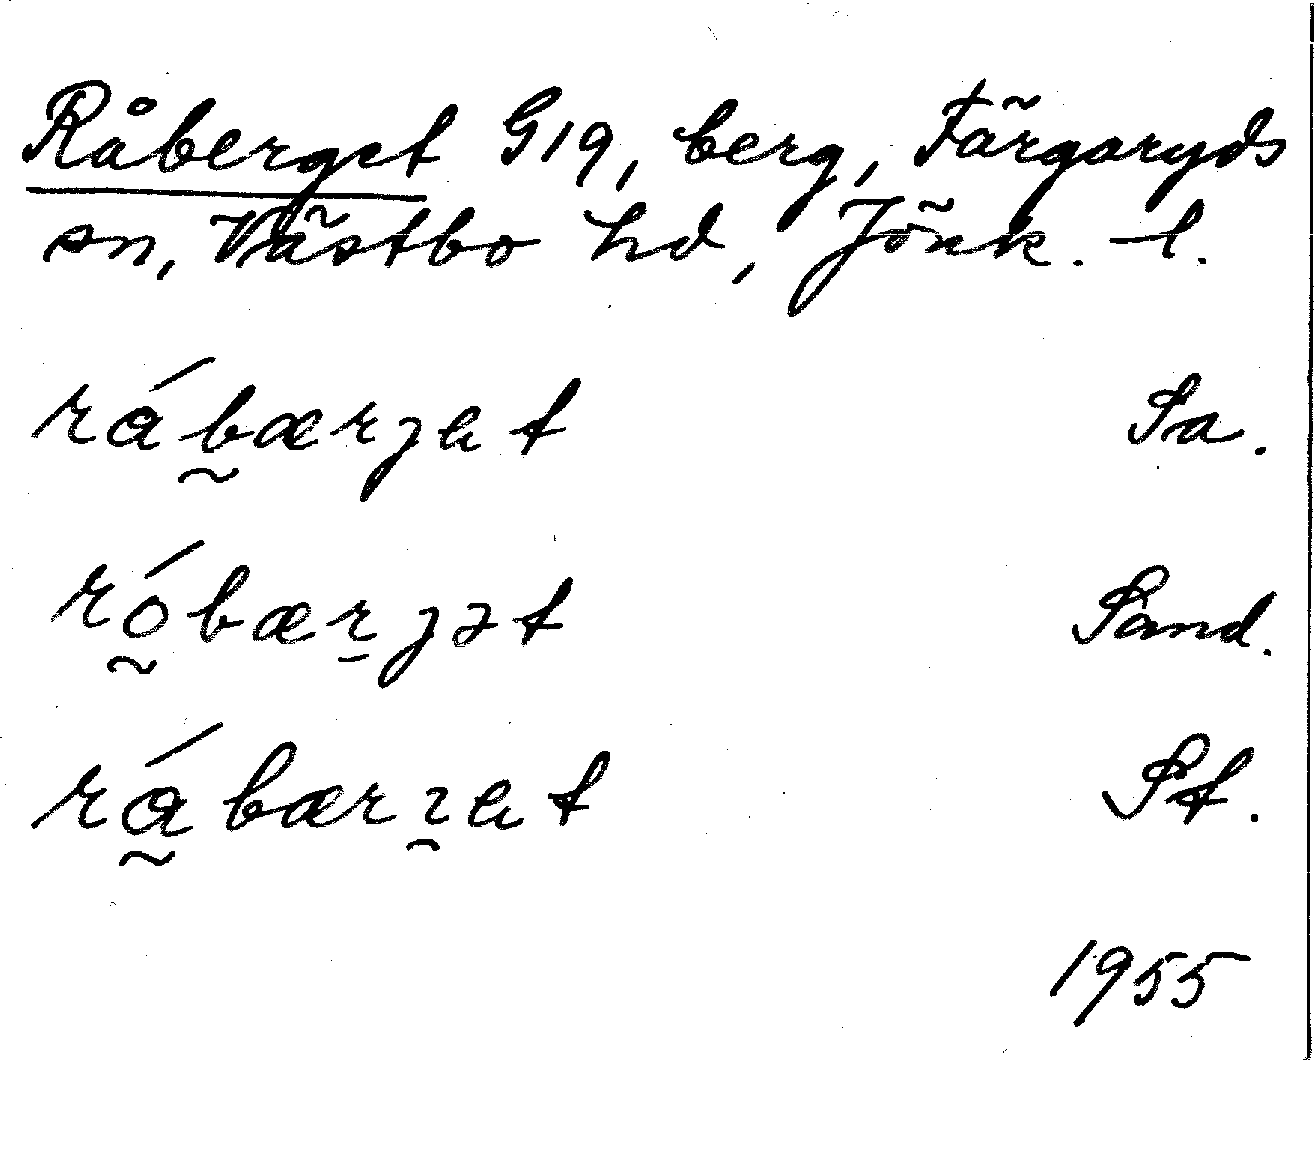 Råberget G19, berg, Färgaryds
sn, Västbo hd, Jönk. l.
rábærȷet Sa.
róbærȷət Sand.
rábærɿet St.
1955